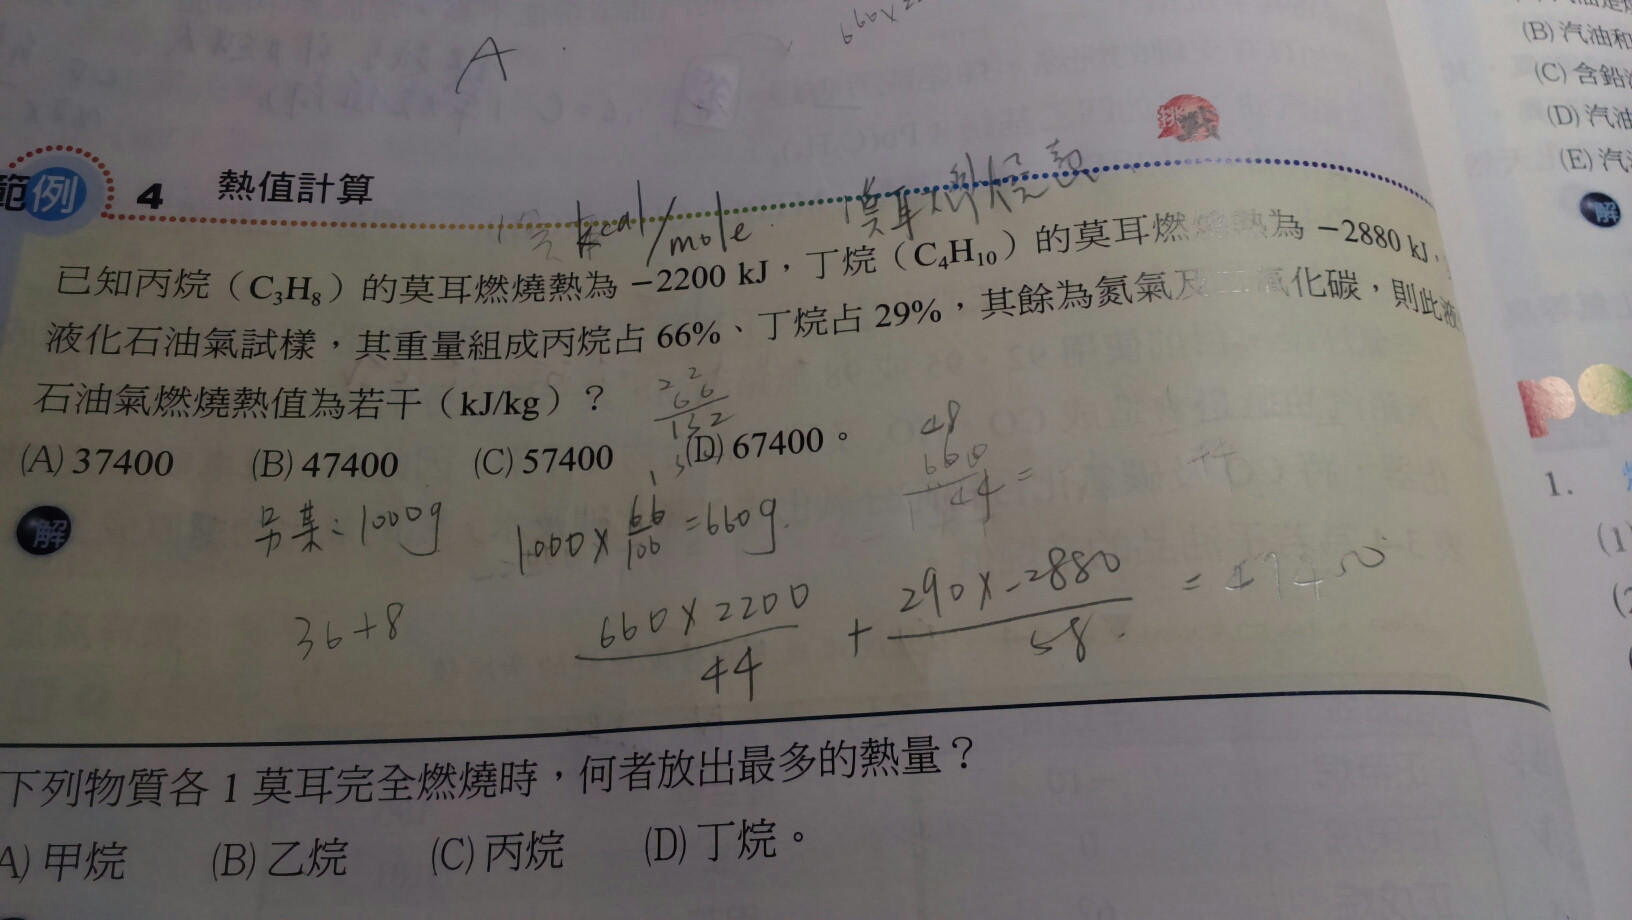 660×2
A
(B) 汽油和
(C) 含鉛
(D) 汽油
(E) 汽
挑戰
範例 4 熱值計算
kcal/mole 莫耳燃燒熱
解
已知丙烷（C₃H₈）的莫耳燃燒熱為 −2200 kJ，丁烷（C₄H₁₀）的莫耳燃燒熱為 −2880 kJ，
液化石油氣試樣，其重量組成丙烷占 66%、丁烷占 29%，其餘為氮氣及二氧化碳，則此液
石油氣燃燒熱值為若干（kJ/kg）？
22
66
132
(A) 37400 (B) 47400 (C) 57400 (D) 67400。
48
660
44 =
1.
解
1000g
1000 × 66/100 = 660g.
(1)
36+8
660 × 2200 / 44 + 290 × -2880 / 58. =
(2
下列物質各 1 莫耳完全燃燒時，何者放出最多的熱量？
A) 甲烷 (B) 乙烷 (C) 丙烷 (D) 丁烷。